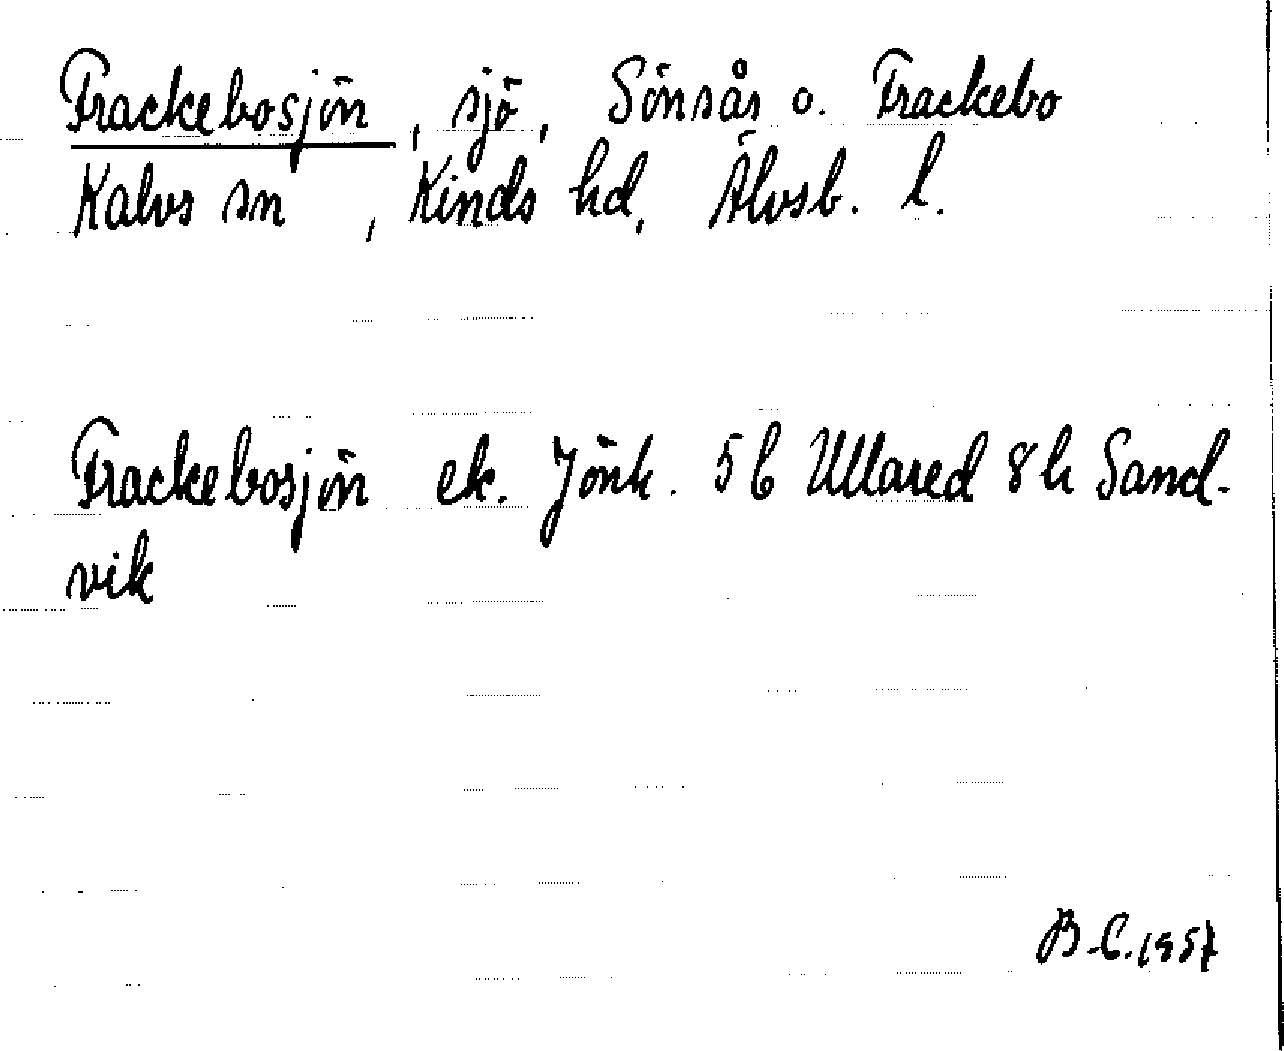 Frackebosjön, sjö, Sönsås o. Frackebo
Kalvs sn, Kinds hd, Älvsb. l.
Frackebosjön ek. Jönk. 5b Ullared 8h Sand-
vik
B-C. 1957